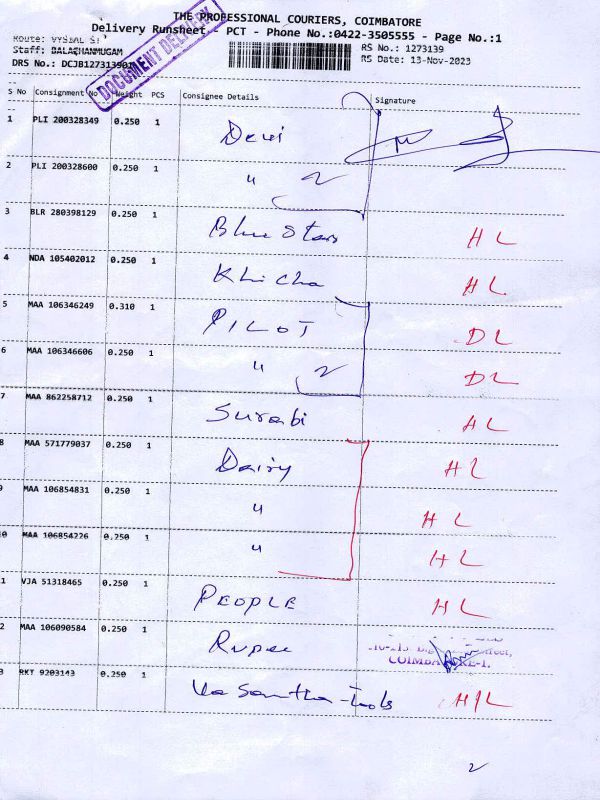 THE PROFESSIONAL COURIERS, COIMBATORE
Delivery Runsheet - PCT - Phone No.:0422-3505555 - Page No.:1
Route: VYSIAL ST
Staff: BALACHANMUGAM
RS No.: 1273139
DRS No.: DCJB127313901
RS Date: 13-Nov-2023
DOCUMENT DELIVERY
S No Consignment No Weight PCS Consignee Details Signature
1 PLI 200328349 0.250 1 Devi
2 PLI 200328600 0.250 1 " 2
3 BLR 280398129 0.250 1 Blue Stars HL
4 NDA 105402012 0.250 1 Khicha HL
5 MAA 106346249 0.310 1 PILOT DL
6 MAA 106346606 0.250 1 " 2 DL
7 MAA 862258712 0.250 1 Surabi HL
8 MAA 571779037 0.250 1 Dairy HL
9 MAA 106854831 0.250 1 " HL
10 MAA 106854226 0.250 1 " HL
11 VJA 51318465 0.250 1 PEOPLE HL
12 MAA 106090584 0.250 1 Rupee COIMBATORE-1.
13 RKT 9203143 0.250 1 Vasantha Tools H/L
2